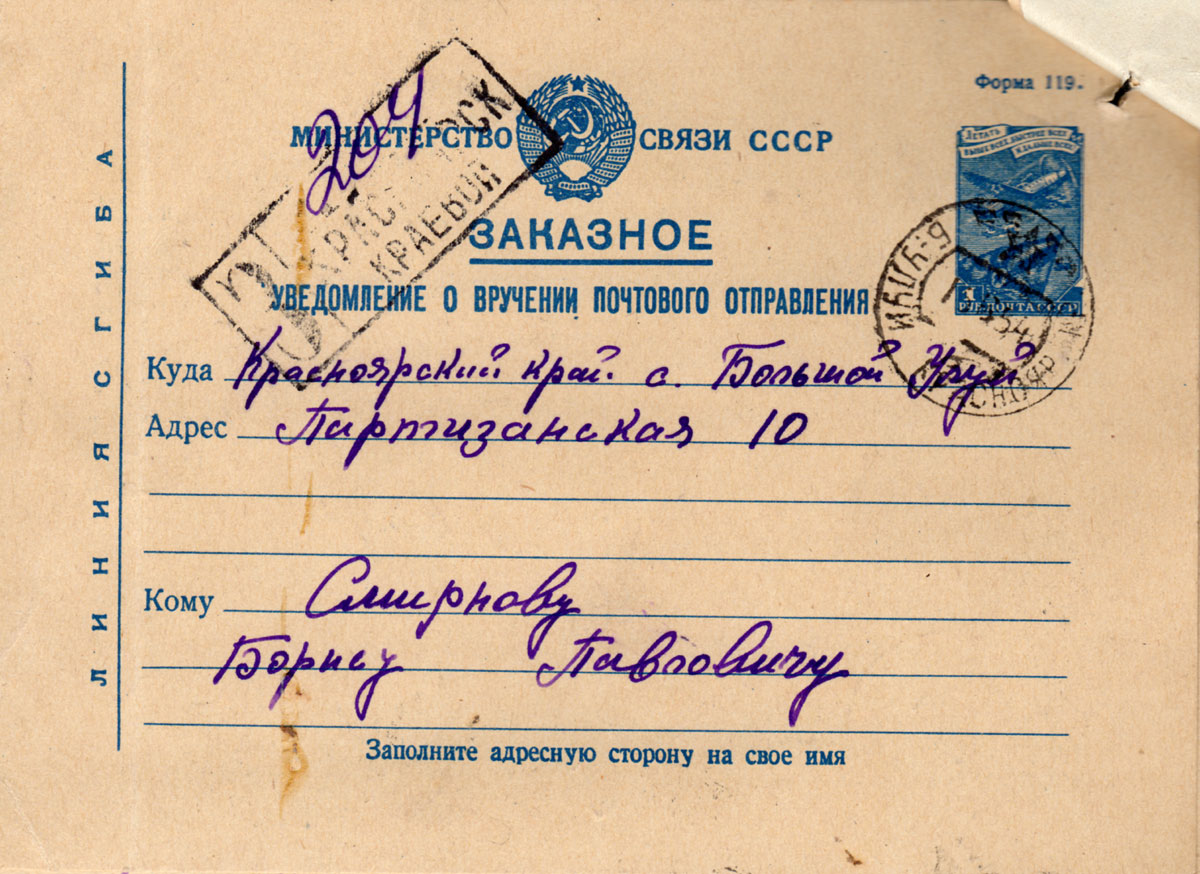 Форма 119.
МИНИСТЕРСТВО СВЯЗИ СССР
204
КРАСНОЯРСК
КРАЕВОЙ
ЛЕТАТЬ ВЫШЕ ВСЕХ, БЫСТРЕЕ ВСЕХ И ДАЛЬШЕ ВСЕХ
1 РУБ. ПОЧТА СССР
ЗАКАЗНОЕ
УВЕДОМЛЕНИЕ О ВРУЧЕНИИ ПОЧТОВОГО ОТПРАВЛЕНИЯ
Куда Красноярский край с. Большой Улуй
Адрес Партизанская 10
Кому Смирнову
Борису Павловичу
Заполните адресную сторону на свое имя
ЛИНИЯ СГИБА